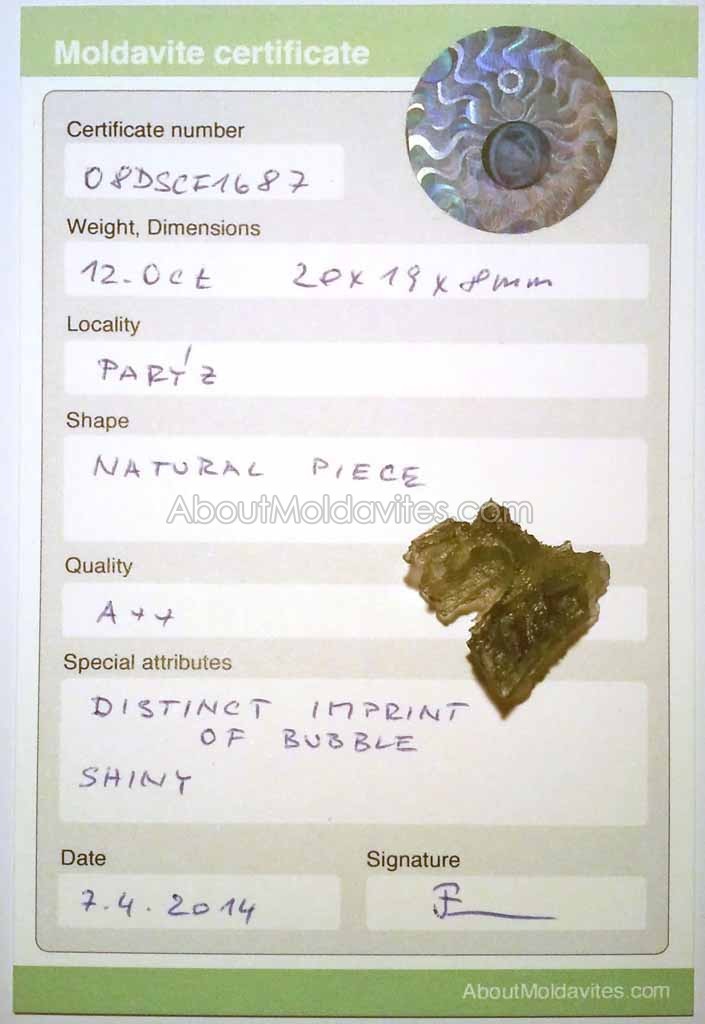 Moldavite certificate
Certificate number
08DSCF1687
Weight, Dimensions
12.0ct 20x19x8mm
Locality
PARÝZ
Shape
NATURAL PIECE
AboutMoldavites.com
Quality
A++
Special attributes
DISTINCT IMPRINT
OF BUBBLE
SHINY
Date
7.4.2014
Signature
AboutMoldavites.com